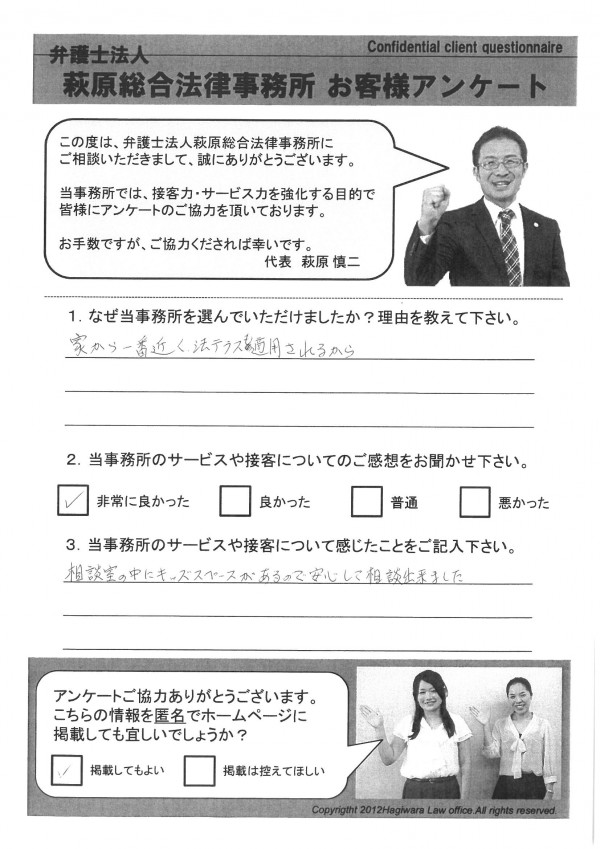 Confidential client questionnaire
弁護士法人
萩原総合法律事務所 お客様アンケート
この度は、弁護士法人萩原総合法律事務所に
ご相談いただきまして、誠にありがとうございます。
当事務所では、接客力・サービス力を強化する目的で
皆様にアンケートのご協力を頂いております。
お手数ですが、ご協力くだされば幸いです。
代表 萩原 慎二
1. なぜ当事務所を選んでいただけましたか？理由を教えて下さい。
家から一番近く、法テラスも適用されるから
2. 当事務所のサービスや接客についてのご感想をお聞かせ下さい。
✓ 非常に良かった 良かった 普通 悪かった
3. 当事務所のサービスや接客について感じたことをご記入下さい。
相談室の中にキッズスペースがあるので安心して相談出来ました
アンケートご協力ありがとうございます。
こちらの情報を匿名でホームページに
掲載しても宜しいでしょうか？
✓ 掲載してもよい 掲載は控えてほしい
Copyrigtht 2012Hagiwara Law office.All rights reserved.